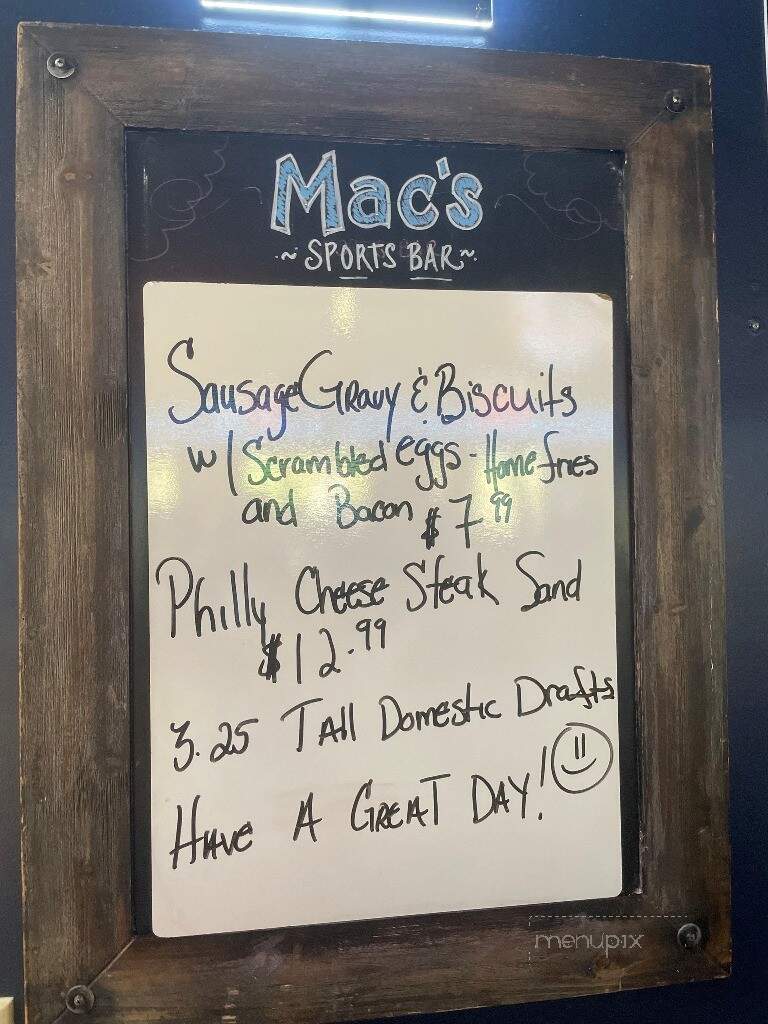 Mac's
~ SPORTS BAR ~
Sausage Gravy & Biscuits
w/ Scrambled eggs - Home fries
and Bacon $7.99
Philly Cheese Steak Sand
$12.99
3.25 Tall Domestic Drafts
Have A Great Day!
menupix